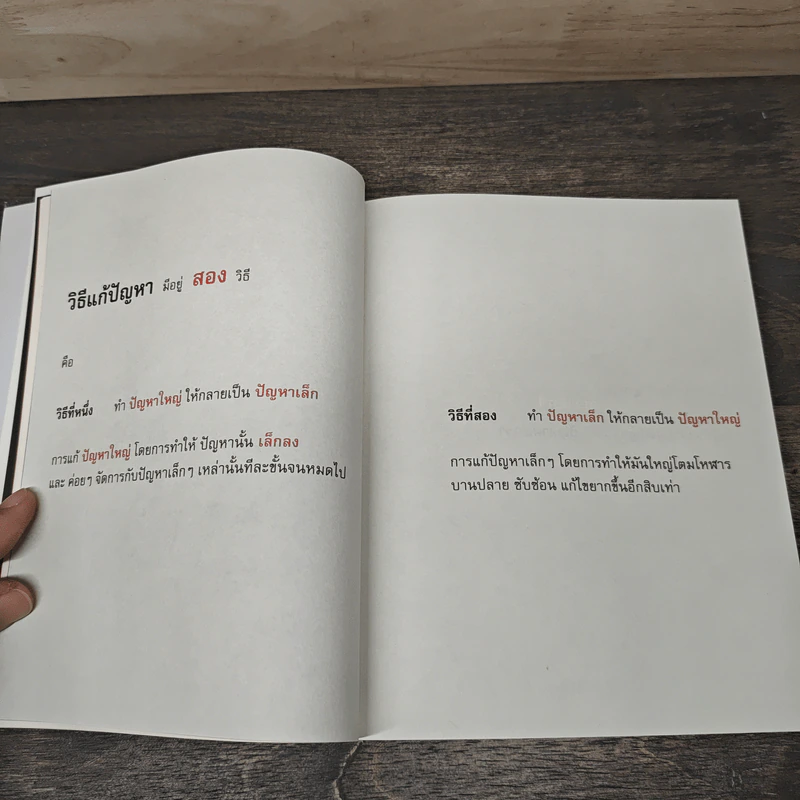 วิธีแก้ปัญหา มีอยู่ สอง วิธี
คือ
วิธีที่หนึ่ง ทำ ปัญหาใหญ่ ให้กลายเป็น ปัญหาเล็ก
การแก้ ปัญหาใหญ่ โดยการทำให้ ปัญหานั้น เล็กลง
และ ค่อยๆ จัดการกับปัญหาเล็กๆ เหล่านั้นทีละขั้นจนหมดไป
วิธีที่สอง ทำ ปัญหาเล็ก ให้กลายเป็น ปัญหาใหญ่
การแก้ปัญหาเล็กๆ โดยการทำให้มันใหญ่โตมโหฬาร
บานปลาย ซับซ้อน แก้ไขยากขึ้นอีกสิบเท่า